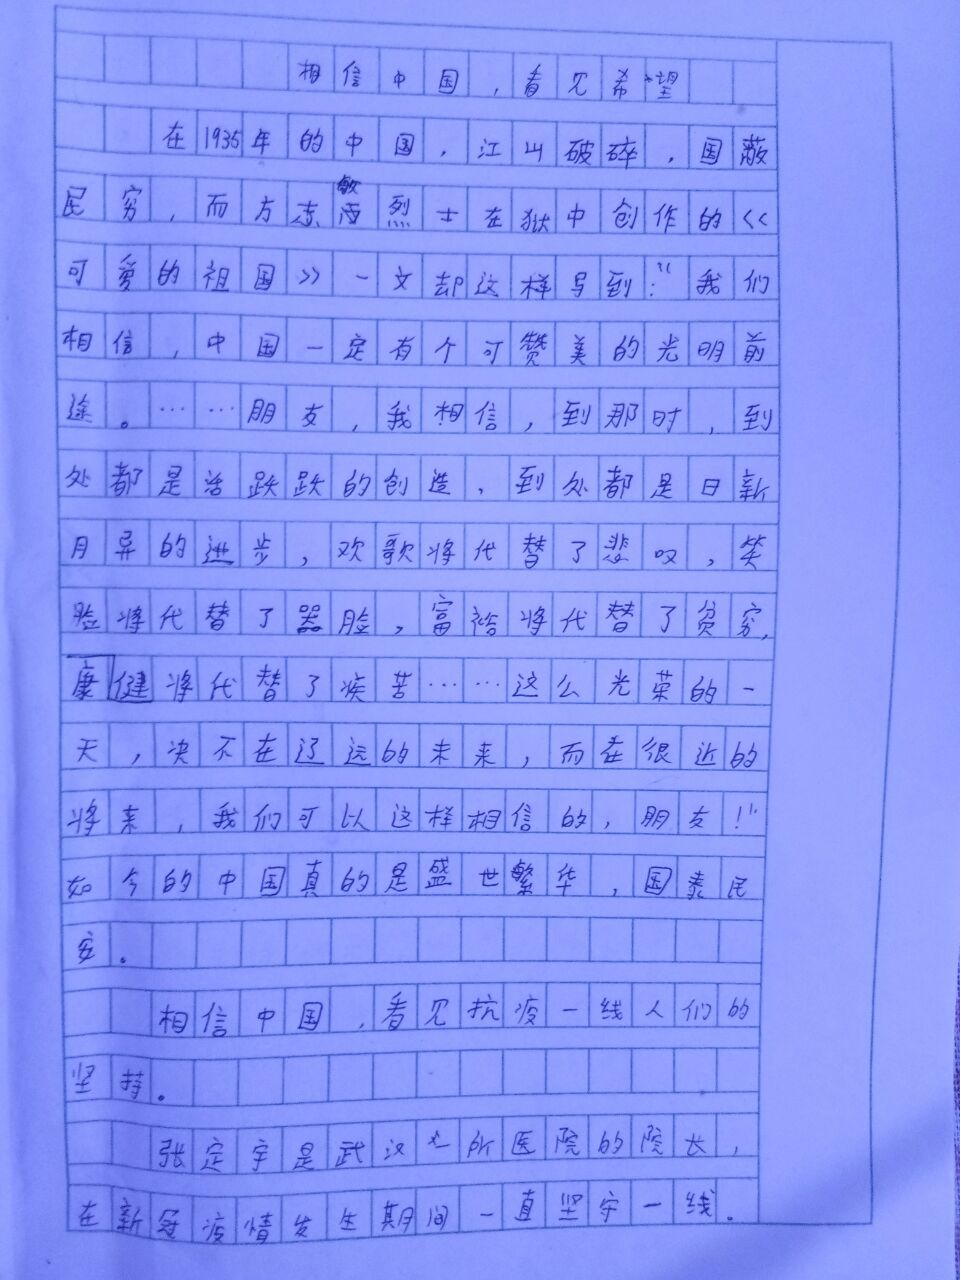 相信中国，看见希望
在1935年的中国，江山破碎，国蔽
民穷，而方志敏烈士在狱中创作的《
可爱的祖国》一文却这样写到："我们
相信，中国一定有个可赞美的光明前
途。……朋友，我相信，到那时，到
处都是活跃跃的创造，到处都是日新
月异的进步，欢歌将代替了悲叹，笑
脸将代替了哭脸，富裕将代替了贫穷，
康健将代替了疾苦……这么光荣的一
天，决不在辽远的未来，而在很近的
将来，我们可以这样相信的，朋友！"
如今的中国真的是盛世繁华，国泰民
安。
相信中国，看见抗疫一线人们的
坚持。
张定宇是武汉一所医院的院长，
在新冠疫情发生期间一直坚守一线。